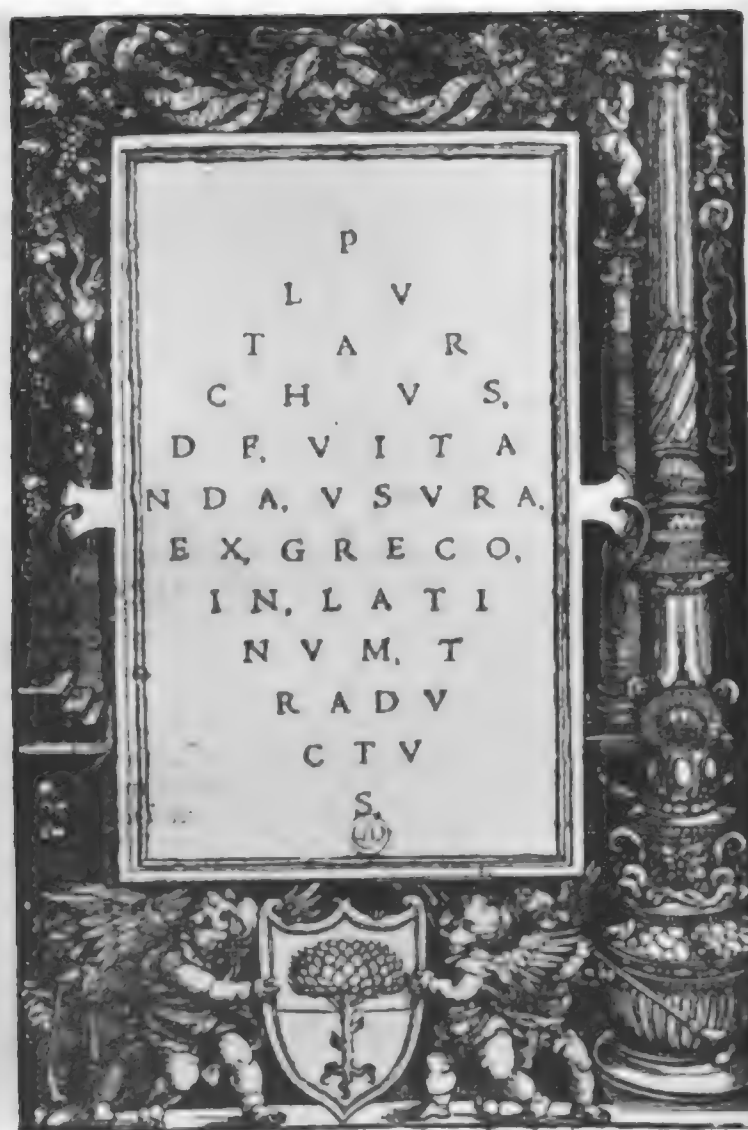 P
L V
T A R
C H V S,
D E, V I T A
N D A, V S V R A,
E X, G R E C O,
I N, L A T I
N V M, T
R A D V
C T V
S,